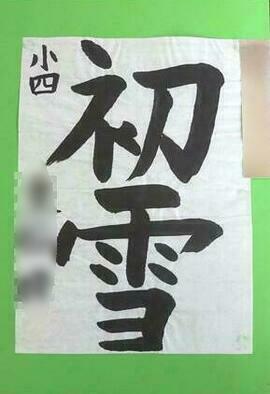 初雪
小四